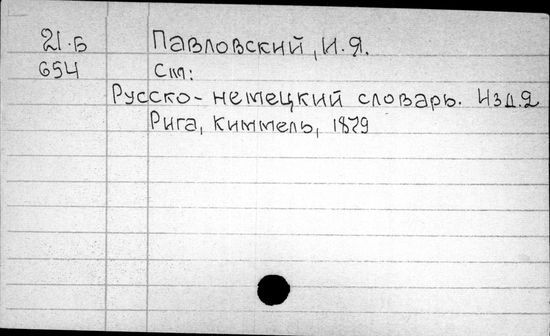 21.Б Павловский, И.Я.
654 См:
Русско-немецкий словарь. Изд.2
Рига, Киммель, 1879